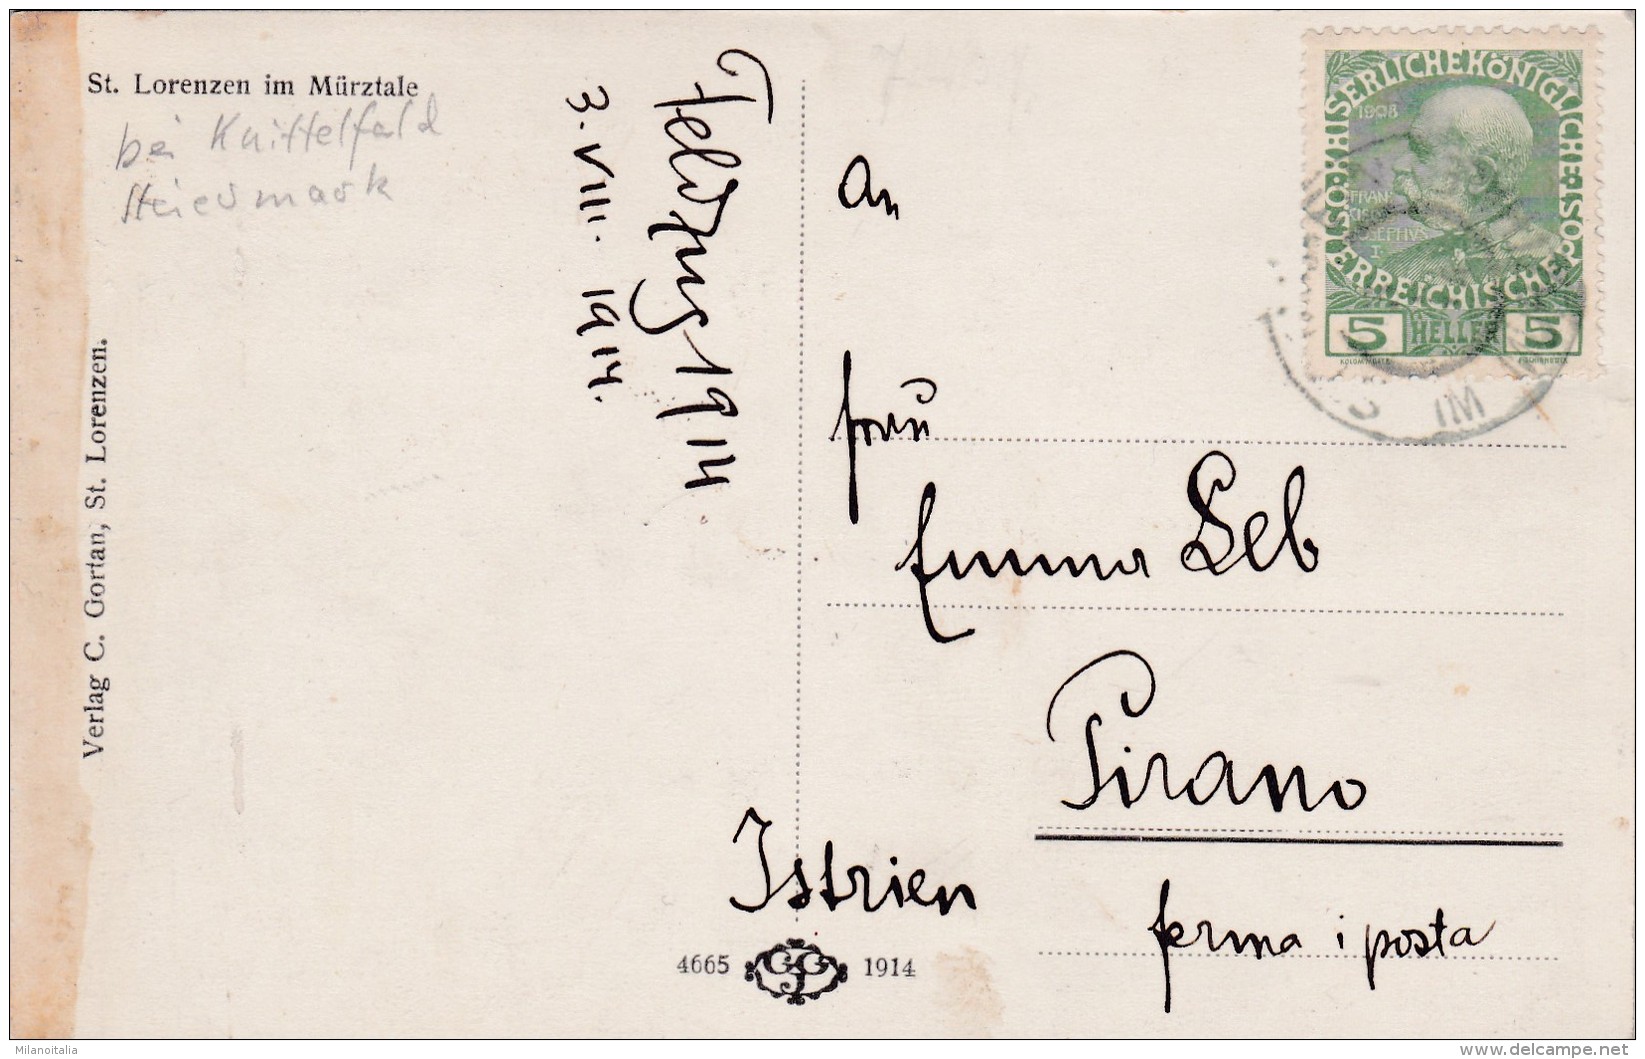 St. Lorenzen im Mürztale
bei Knittelfeld
Steiermark
Verlag C. Gortan, St. Lorenzen.
Feldzug 1914
3. VIII. 1914.
KAISERLICHE KÖNIGLICHE ÖSTERREICHISCHE POST
1908
FRAN
CISC
JOSEPHVS
I
5 HELLER 5
An
Frau
Emma Leb
Pirano
Istrien
ferma i posta
4665 1914
Milanoitalia
www.delcampe.net